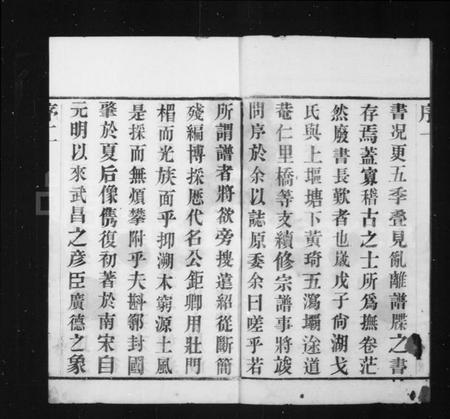 序一
書况更五季疊見亂離譜牒之書
存焉蓋寡稽古之士所為撫卷茫
然廢書長歎者也歲戊子尙湖戈
氏與上堰塘下黃琦五瀉壩途道
菴仁里橋等支續修宗譜事將竣
問序於余以誌原委余曰嗟乎若
所謂譜者將欲旁搜遠紹從斷簡
殘編博採厯代名公鉅卿用壯門
楣而光族面乎抑溯木窮源土風
是採而無煩攀附乎夫斟鄩封國
肇於夏后像儁復初著於南宋自
元明以來武昌之彥臣廣德之象
序二